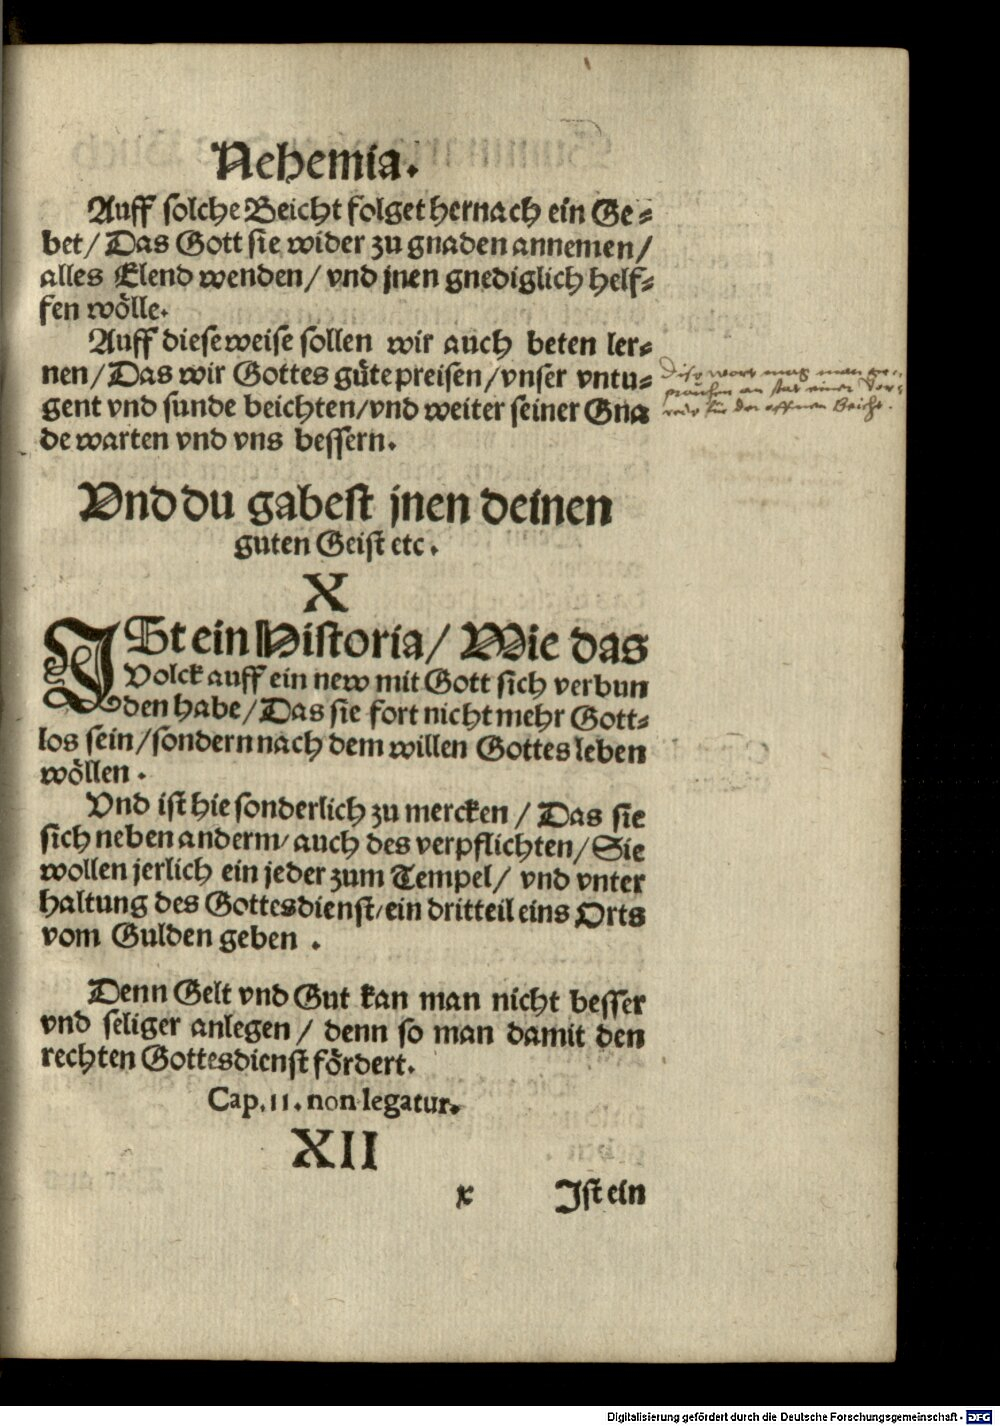 Nehemia.
Auff solche Beicht folget hernach ein Ge⸗
bet/ Das Gott sie wider zu gnaden annemen/
alles Elend wenden/ vnd jnen gnediglich helf⸗
fen wölle.
Auff diese weise sollen wir auch beten ler⸗
nen/ Das wir Gottes güte preisen/ vnser vntu⸗
gent vnd sunde beichten/ vnd weiter seiner Gna
de warten vnd vns bessern.
Dise wort mag man
an stat einer Vor⸗
rede für der offnen Beicht.
Vnd du gabest jnen deinen
guten Geist etc.
X
ISt ein Historia/ Wie das
Volck auff ein new mit Gott sich verbun
den habe/ Das sie fort nicht mehr Gott⸗
los sein/ sondern nach dem willen Gottes leben
wöllen.
Vnd ist hie sonderlich zu mercken/ Das sie
sich neben anderm/ auch des verpflichten/ Sie
wollen jerlich ein jeder zum Tempel/ vnd vnter
haltung des Gottesdienst/ ein dritteil eins Orts
vom Gulden geben.
Denn Gelt vnd Gut kan man nicht besser
vnd seliger anlegen/ denn so man damit den
rechten Gottesdienst fördert.
Cap. 11. non legatur.
XII
x Ist ein
Digitalisierung gefördert durch die Deutsche Forschungsgemeinschaft - DFG